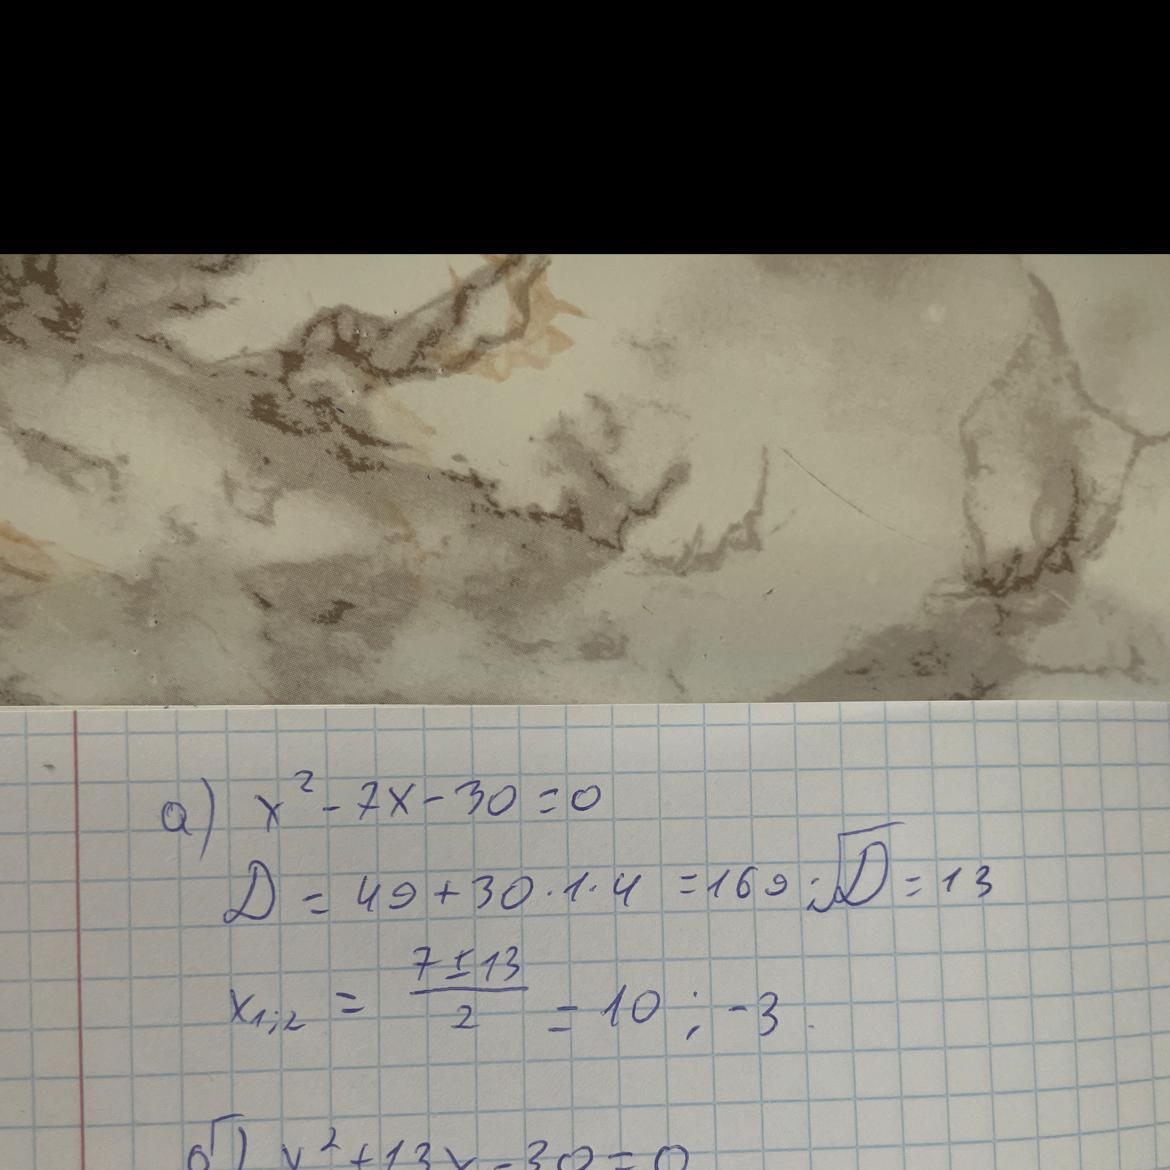 а) x² - 7x - 30 = 0
D = 49 + 30 · 1 · 4 = 169; √D = 13
x₁;₂ = (7 ± 13)/2 = 10 ; -3.
б) x² + 13x - 30 = 0